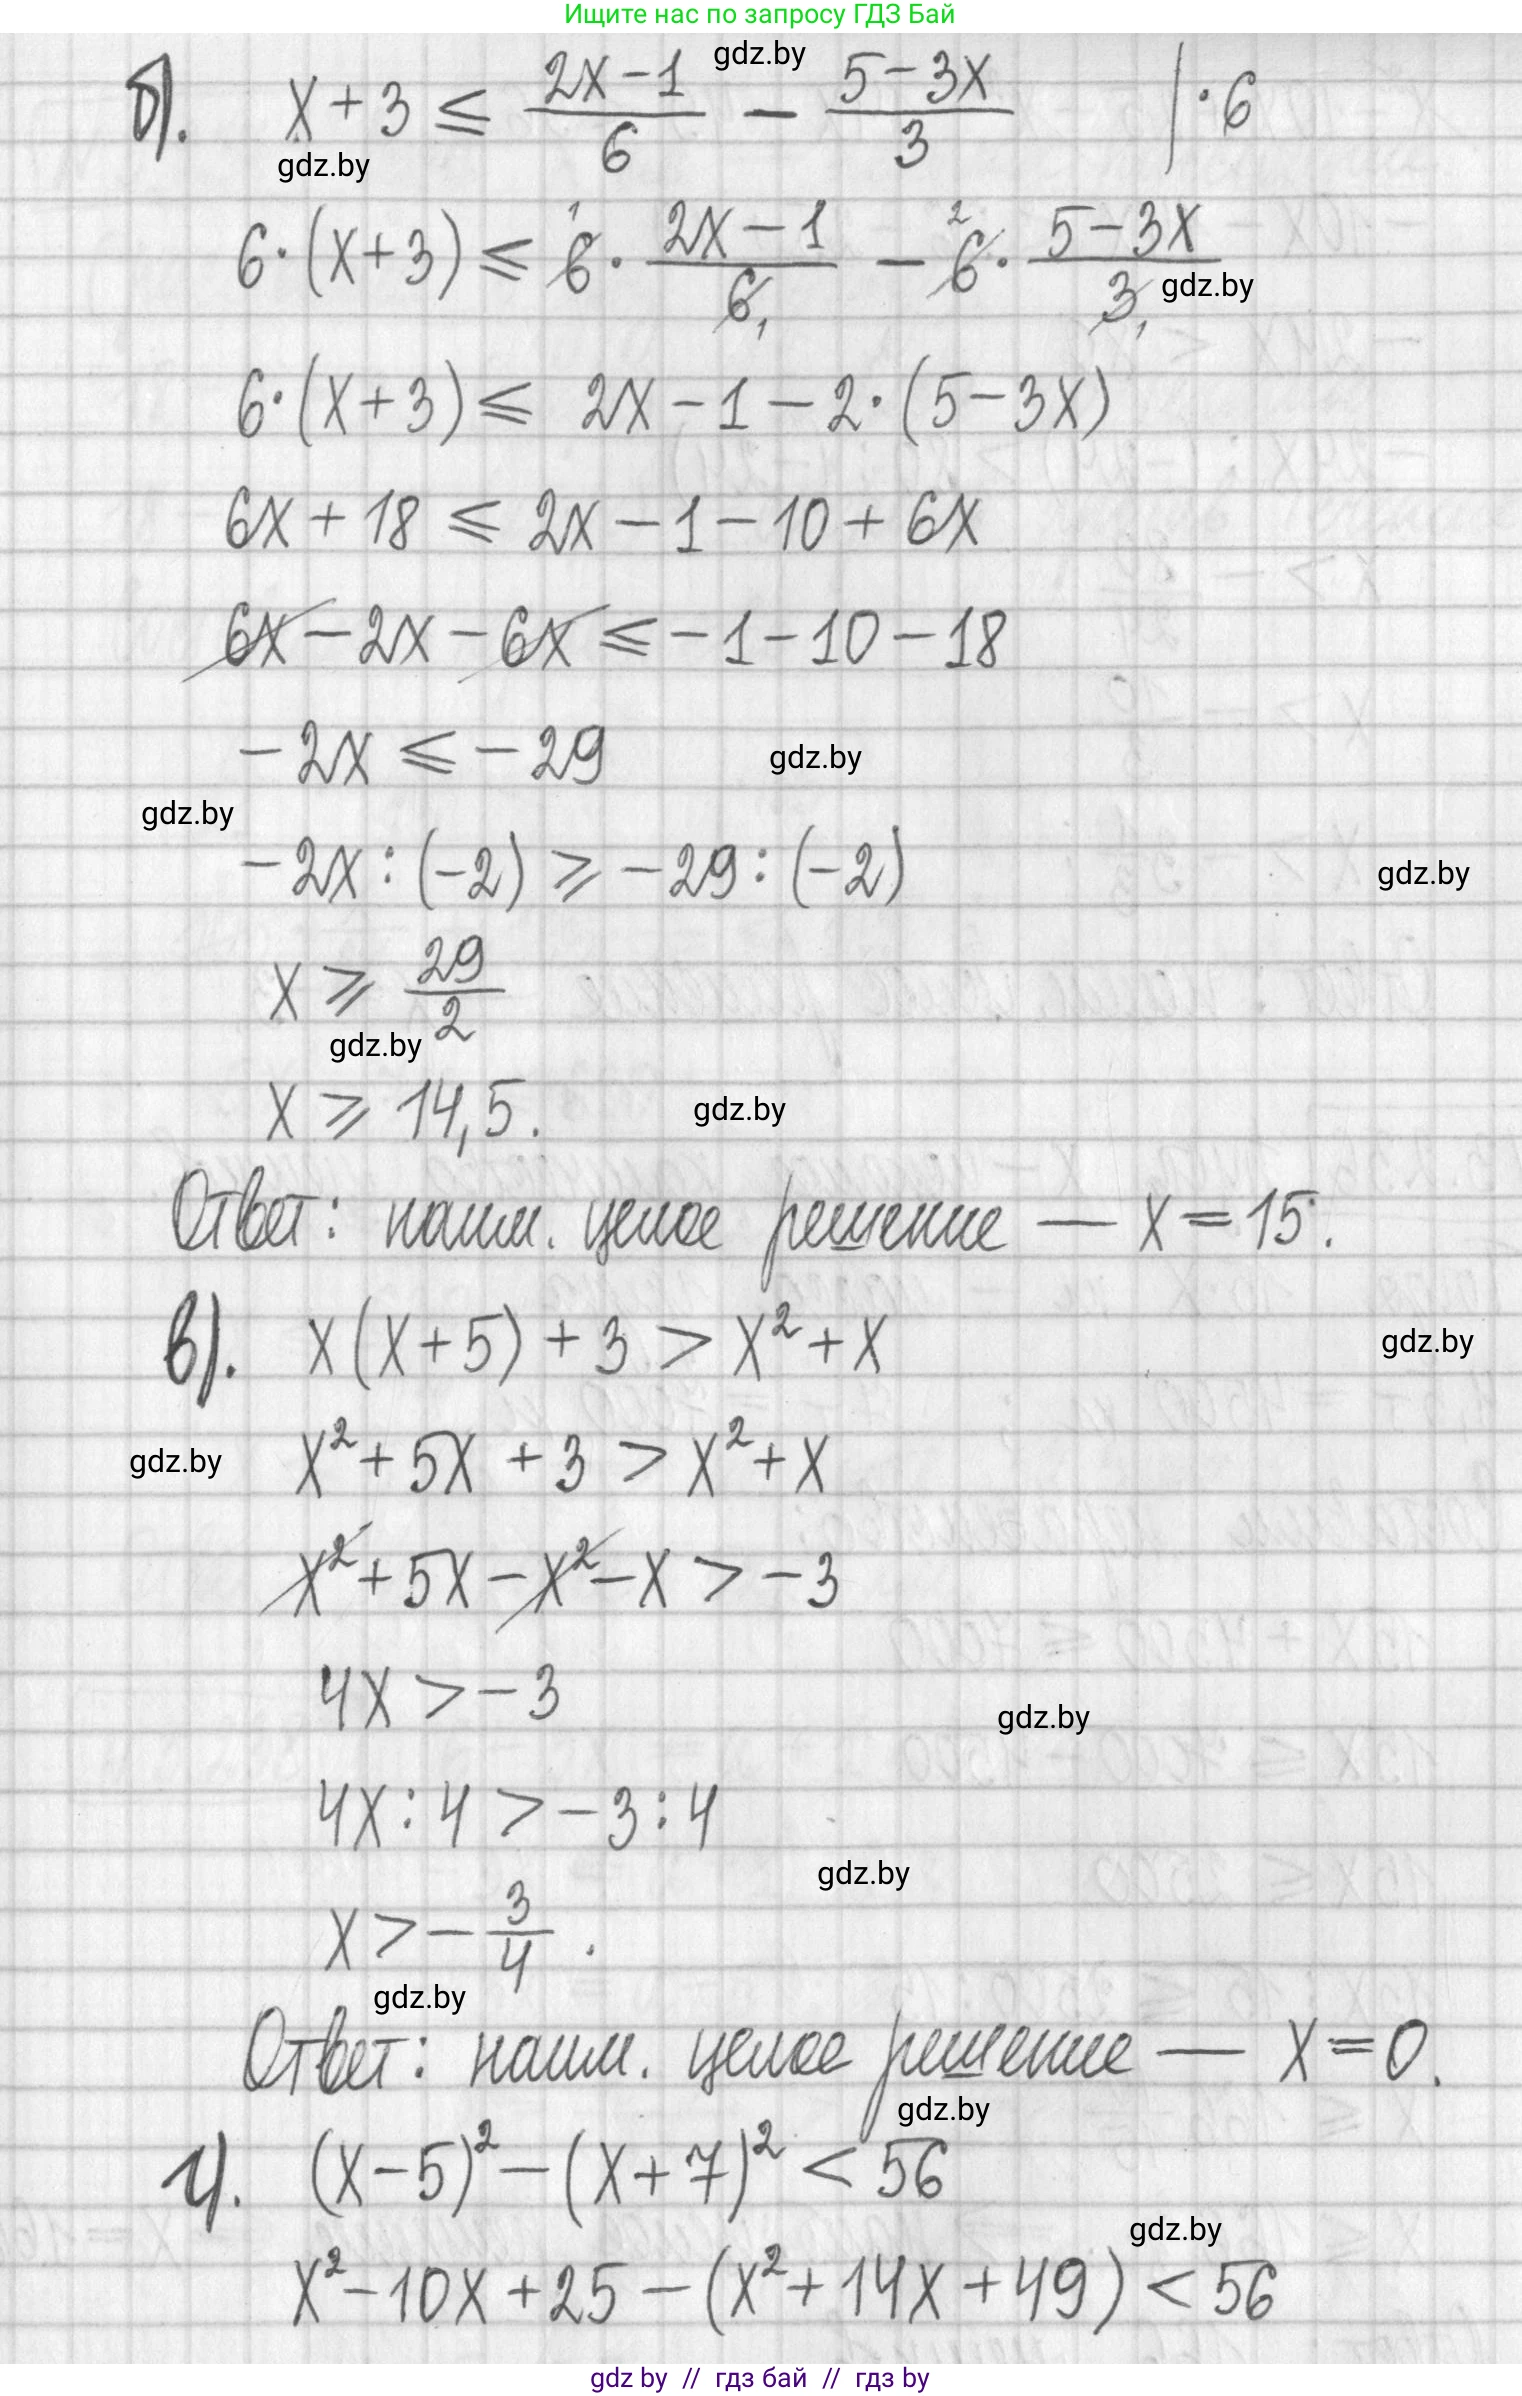 Ищите нас по запросу ГДЗ Бай
gdz.by
б). x + 3 ≤ (2x − 1)/6 − (5 − 3x)/3 | · 6
gdz.by
6 · (x + 3) ≤ 6¹ · (2x − 1)/6₁ − 6² · (5 − 3x)/3₁
gdz.by
6 · (x + 3) ≤ 2x − 1 − 2 · (5 − 3x)
6x + 18 ≤ 2x − 1 − 10 + 6x
6x − 2x − 6x ≤ − 1 − 10 − 18
− 2x ≤ − 29
gdz.by
gdz.by
− 2x : (−2) ≥ − 29 : (−2)
gdz.by
x ≥ 29/2
gdz.by
x ≥ 14,5.
gdz.by
Ответ: наим. целое решение — x = 15.
в). x(x + 5) + 3 > x² + x
gdz.by
x² + 5x + 3 > x² + x
gdz.by
x² + 5x − x² − x > − 3
4x > − 3
gdz.by
4x : 4 > − 3 : 4
gdz.by
x > − 3/4.
gdz.by
Ответ: наим. целое решение — x = 0.
gdz.by
г). (x − 5)² − (x + 7)² < 56
gdz.by
x² − 10x + 25 − (x² + 14x + 49) < 56
gdz by // гдз бай // гдз by